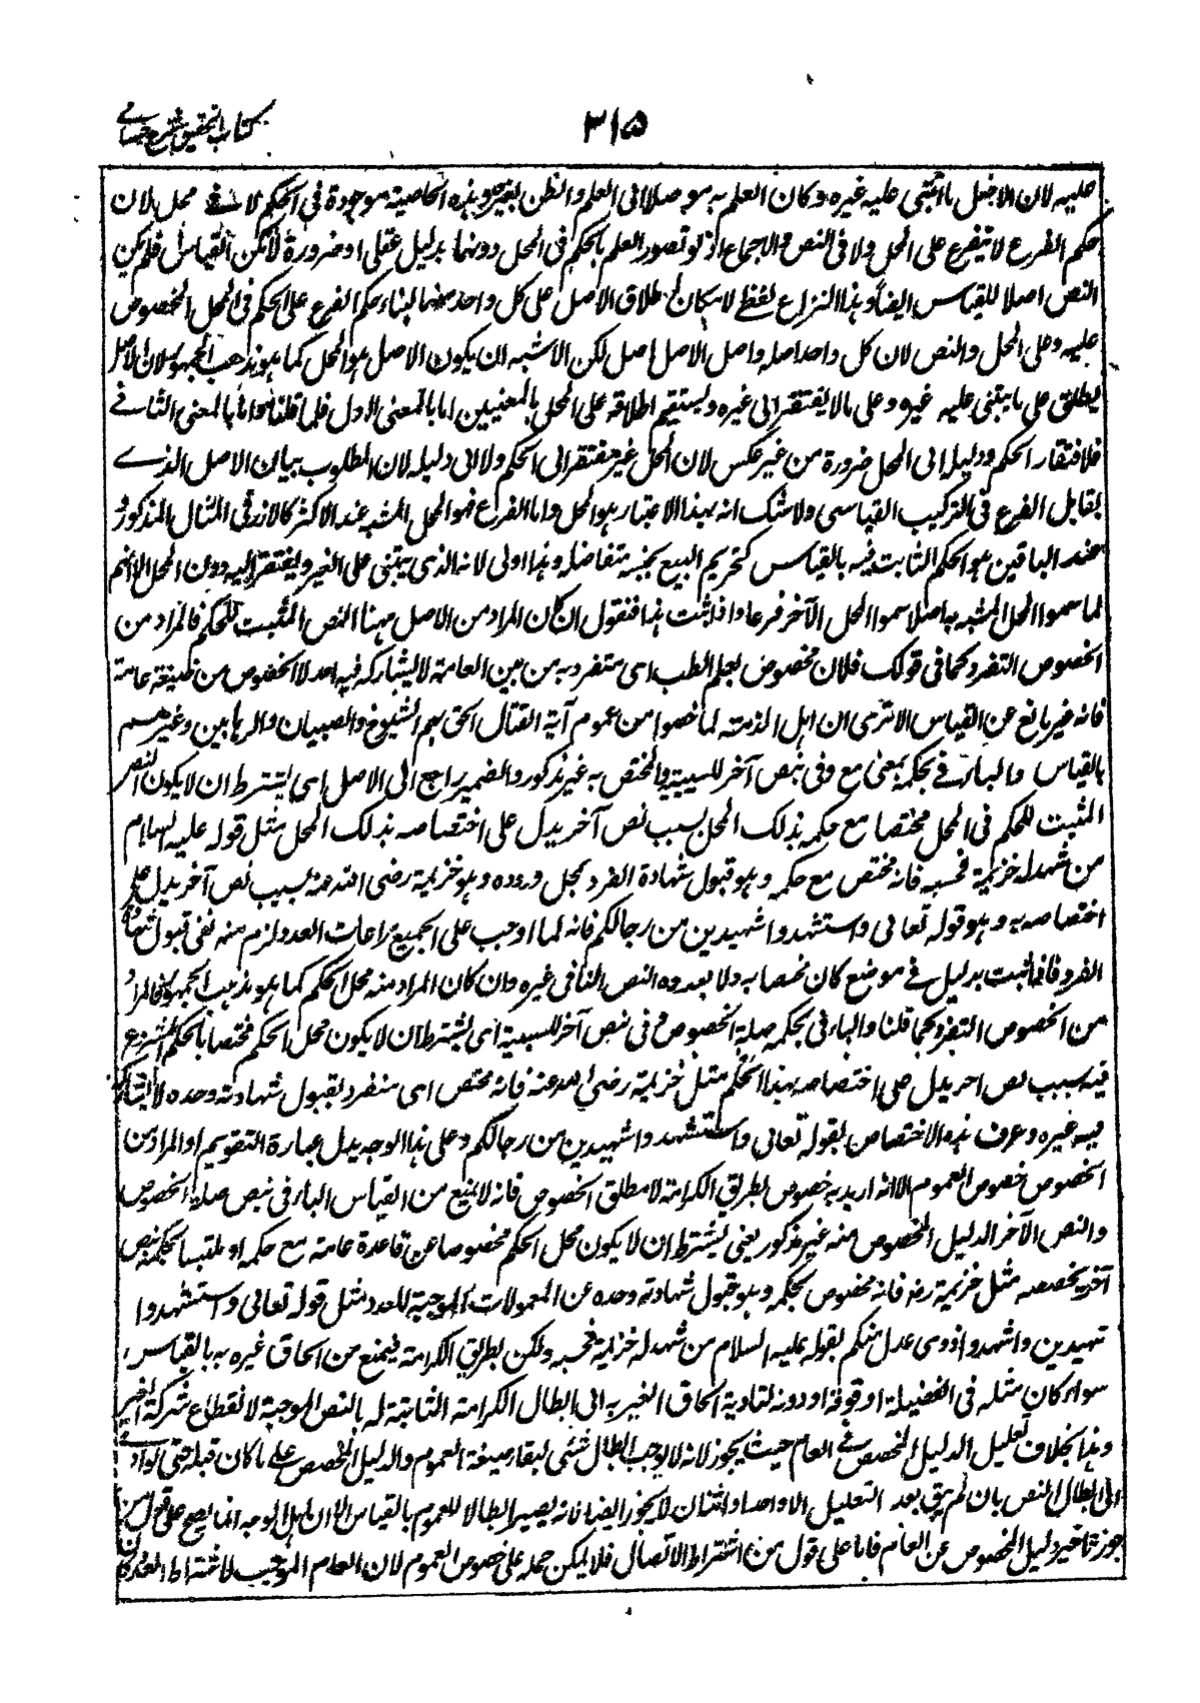 كتاب التحقيق شرح حسامي
٣١٥
عليه لان الاصل ما ابتنى عليه غيره وكان العلم به موصلا الى العلم والظن بغيره وهذه الخاصية موجودة فى الحكم لا فى محل لان
حكم الفرع لا يتفرع على المحل ولا فى النص والاجماع اذ لو تصور العلم بالحكم فى المحل دونهما بدليل عقلى او ضرورة لامكن القياس فلم يكن
النص اصلا للقياس ايضا وهذا النزاع لفظى لامكان اطلاق الاصل على كل واحد منهما لبناء حكم الفرع على الحكم فى المحل المخصوص
عليه وعلى المحل والنص لان كل واحد اصله واصل الاصل اصل لكن الاشبه ان يكون الاصل هو المحل كما هو مذهب الجمهور لان الاصل
يطلق على ما يبتنى عليه غيره وعلى ما لا يفتقر الى غيره ويستقيم اطلاقه على المحل بالمعنيين اما بالمعنى الاول فلما قلنا واما بالمعنى الثانى
فلافتقار الحكم ودليله الى المحل ضرورة من غير عكس لان المحل غير مفتقر الى الحكم ولا الى دليله لان المطلوب بيان الاصل الذى
يقابل الفرع فى التركيب القياسى ولا شك انه بهذا الاعتبار هو المحل واما الفرع فهو المحل المشبه عند الاكثر كالارز فى المثال المذكور و
عند الباقين هو الحكم الثابت فيه بالقياس كتحريم البيع بجنسه متفاضلا وهذا اولى لانه الذى يبتنى على الغير ويفتقر اليه دون المحل الا انهم
لما سموا المحل المشبه به اصلا سموا المحل الآخر فرعا واذا ثبت هذا فنقول ان كان المراد من الاصل ههنا النص المثبت للحكم فالمراد من
الخصوص التفرد كما فى قولك فلان مخصوص بعلم الطب اى متفرد به من بين العامة لا يشاركه فيه احد لا الخصوص من صيغة عامة
فانه غير مانع عن القياس الا ترى ان اهل الذمة لما خصوا من عموم آية القتال الحق بهم الشيوخ والصبيان والرهابين وغيرهم
بالقياس والباء فى بحكمه بمعنى مع وفى بنص آخر للسببية والمختص به غير مذكور والضمير راجع الى الاصل اى يشترط ان لا يكون النص
المثبت للحكم فى المحل مختصا مع حكمه بذلك المحل بسبب نص آخر يدل على اختصاصه بذلك المحل مثل قوله عليه السلام
من شهد له خزيمة فحسبه فانه مختص مع حكمه وهو قبول شهادة الفرد بمحل وروده وهو خزيمة رضى الله عنه بسبب نص آخر يدل على
اختصاصه به وهو قوله تعالى واستشهدوا شهيدين من رجالكم فانه لما اوجب على الجميع مراعات العدد لزم منه نفى قبول شهادة
الفرد فاذا ثبت بدليل فى موضع كان مختصا به ولا يعدوه النص النافى غيره وان كان المراد منه محل الحكم كما هو مذهب الجمهور فالمراد
من الخصوص التفرد كما قلنا والباء فى بحكمه صلة الخصوص وفى بنص آخر للسببية اى يشترط ان لا يكون محل الحكم مختصا بالحكم المشروع
فيه بسبب نص آخر يدل على اختصاصه بهذا الحكم مثل خزيمة رضى الله عنه فانه مختص اى منفرد بقبول شهادته وحده لا يشاركه
فيه غيره وعرف هذه الاختصاص بقوله تعالى واستشهدوا شهيدين من رجالكم وعلى هذا الوجه يدل عبارة التقويم او المراد من
الخصوص خصوص العموم الا انه اريد به خصوص بطريق الكرامة لا مطلق الخصوص فانه لا يمنع من القياس الباء فى بنص صلة الخصوص
والنص الآخر الدليل المخصوص منه غير مذكور يعنى يشترط ان لا يكون محل الحكم مخصوصا عن قاعدة عامة مع حكمه او ملتبسا بحكمه بنص
آخر يخصصه مثل خزيمة رض فانه مخصوص بحكمه وهو قبول شهادته وحده عن العمومات الموجبة للعدد مثل قوله تعالى واستشهدوا
شهيدين واشهدوا ذوى عدل منكم بقوله عليه السلام من شهد له خزيمة فحسبه ولكن بطريق الكرامة فيمنع من الحاق غيره به بالقياس
سواء كان مثله فى الفضيلة او فوقه او دونه لتادية الحاق الغير به الى ابطال الكرامة الثابتة له بالنص الموجبة لانقطاع شركة الغير
وهذا بخلاف تعليل الدليل المخصص فى العام حيث يجوز لانه لا يوجب ابطال شئى لبقاء صيغة العموم والدليل المخصص على ما كان قبله حتى لو ادى
الى ابطال النص بان لم يبق بعد التعليل الا واحد او اثنان لا يجوز ايضا فانه يصير ابطالا للعموم بالقياس الا ان هذا الوجه انما يصح على قول من
جوز تاخير دليل الخصوص عن العام فاما على قول من اشترط الاتصال فلا يمكن حمله على خصوص العموم لان العام الموجب لاشتراط العدد كان